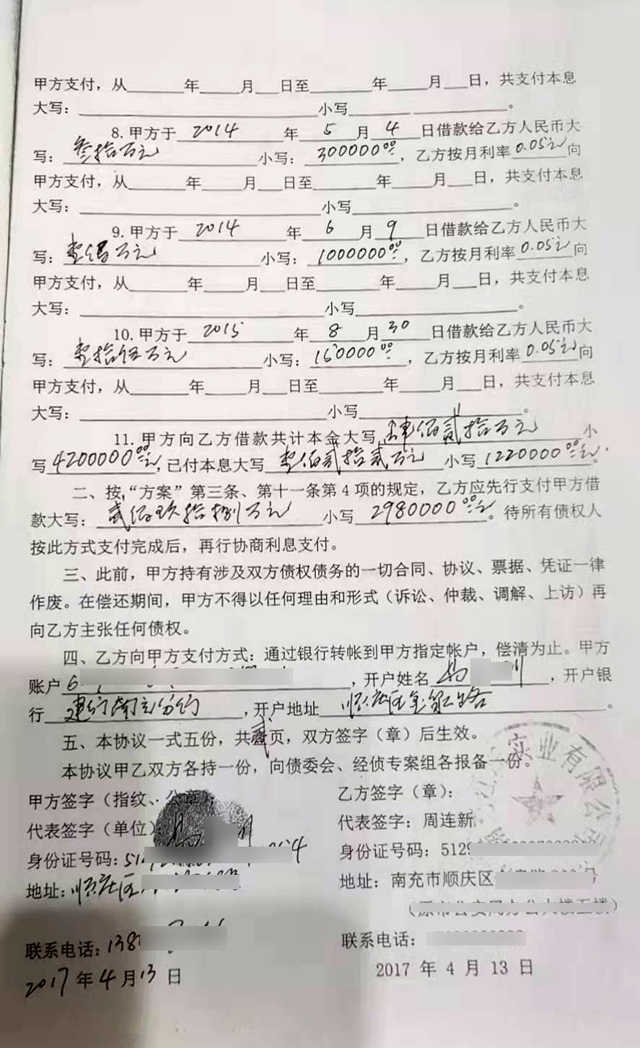 甲方支付，从______年____月__日至______年____月__日，共支付本息
大写：____________________小写____________。
8.甲方于 2014 年 5 月 4 日借款给乙方人民币大
写：叁拾万元 小写：300000.00，乙方按月利率0.05元向
甲方支付，从______年____月__日至______年____月__日，共支付本息
大写：____________________小写____________。
9.甲方于 2014 年 6 月 9 日借款给乙方人民币大
写：壹佰万元 小写：1000000.00，乙方按月利率0.05元向
甲方支付，从______年____月__日至______年____月__日，共支付本息
大写：____________________小写____________。
10.甲方于 2015 年 8 月 30 日借款给乙方人民币大
写：壹拾伍万元 小写：150000.00，乙方按月利率0.05元向
甲方支付，从______年____月__日至______年____月__日，共支付本息
大写：____________________小写____________。
11.甲方向乙方借款共计本金大写 肆佰贰拾万元 小
写4200000.00元，已付本息大写 壹佰贰拾贰万元 小写1220000.00元。
二、按“方案”第三条、第十一条第4项的规定，乙方应先行支付甲方借
款大写：贰佰玖拾捌万元 小写 2980000.00元。待所有债权人
按此方式支付完成后，再行协商利息支付。
三、此前，甲方持有涉及双方债权债务的一切合同、协议、票据、凭证一律
作废。在偿还期间，甲方不得以任何理由和形式（诉讼、仲裁、调解、上访）再
向乙方主张任何债权。
四、乙方向甲方支付方式：通过银行转帐到甲方指定帐户，偿清为止。甲方
账户6 ，开户姓名 ，开户银
行 建行南充分行 ，开户地址 顺庆区 路 。
五、本协议一式五份，共 页，双方签字（章）后生效。
本协议甲乙双方各持一份，向债委会、经侦专案组各报备一份。
实业有限公司
甲方签字（指纹、公章）
乙方签字（章）：
代表签字（单位）
代表签字：周连新
身份证号码：51
身份证号码：5129
地址：顺庆区
地址：南充市顺庆区
（原市公安局办公大楼五楼）
联系电话：138
联系电话：
2017 年 4 月 13 日
2017 年 4 月 13 日